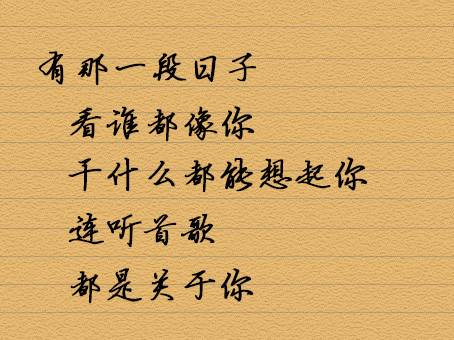 有那一段日子
看谁都像你
干什么都能想起你
连听首歌
都是关于你